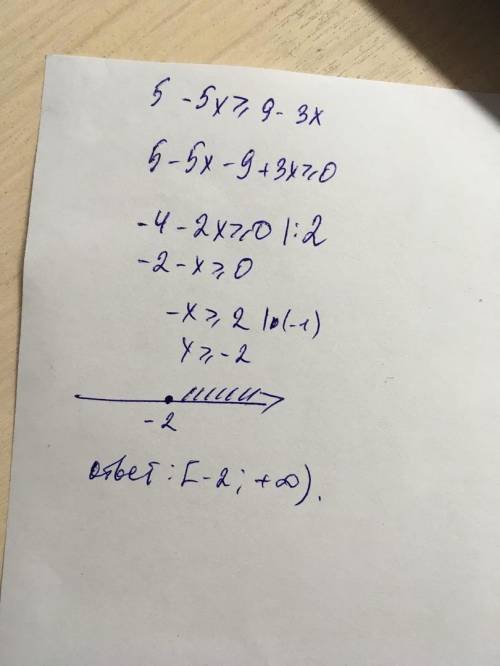 5 - 5x ≥ 9 - 3x
5 - 5x - 9 + 3x ≥ 0
-4 - 2x ≥ 0 |:2
-2 - x ≥ 0
-x ≥ 2 |·(-1)
x ≥ -2
-2
ответ: [-2; +∞).